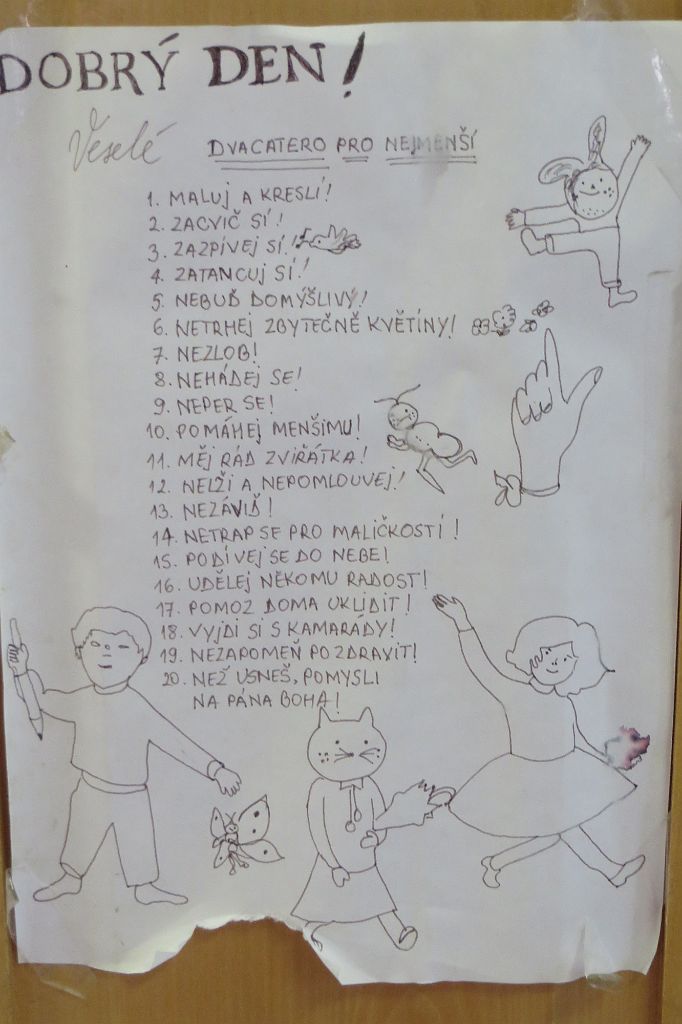 DOBRÝ DEN!
Veselé
DVACATERO PRO NEJMENŠÍ
1. MALUJ A KRESLI!
2. ZACVIČ SI!
3. ZAZPÍVEJ SI!
4. ZATANCUJ SI!
5. NEBUĎ DOMÝŠLIVÝ!
6. NETRHEJ ZBYTEČNĚ KVĚTINY!
7. NEZLOB!
8. NEHÁDEJ SE!
9. NEPER SE!
10. POMÁHEJ MENŠIMU!
11. MĚJ RÁD ZVIŘÁTKA!
12. NELŽI A NEPOMLOUVEJ!
13. NEZÁVIĎ!
14. NETRAP SE PRO MALIČKOSTI!
15. PODÍVEJ SE DO NEBE!
16. UDĚLEJ NĚKOMU RADOST!
17. POMOZ DOMA UKLIDIT!
18. VYJDI SI S KAMARÁDY!
19. NEZAPOMEŇ POZDRAVIT!
20. NEŽ USNEŠ, POMYSLI
NA PÁNA BOHA!